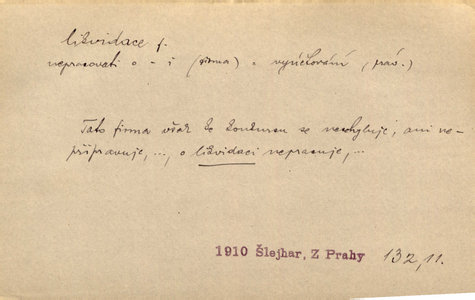 likvidace f.
nepracovati o - i (firma) = vyúčtování (práv.)
Tato firma však ke konkursu se nechyluje, ani ne-
připravuje, ..., o likvidaci nepracuje, ...
1910 Šlejhar, Z Prahy 132, 11.